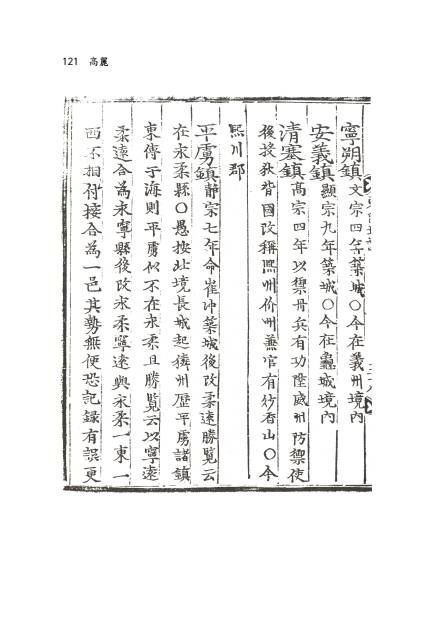 121 高麗
寧朔鎮文宗四年築城〇今在義州境內
安義鎮顯宗九年築城〇今在龜城境內
清塞鎮高宗四年以禦丹兵有功陞威州防禦使
後投狄背國改稱熙州价州兼官有妙香山〇今
熙川郡
平虜鎮靜宗七年命崔冲築城後改柔遠勝覽云
在永柔縣〇愚按此境長城起獜州歷平虜諸鎮
東傳于海則平虜似不在永柔且勝覽云以寧遠
柔遠合為永寧縣後改永柔寧遠與永柔一東一
西不相付接合為一邑其勢無便恐記錄有誤更